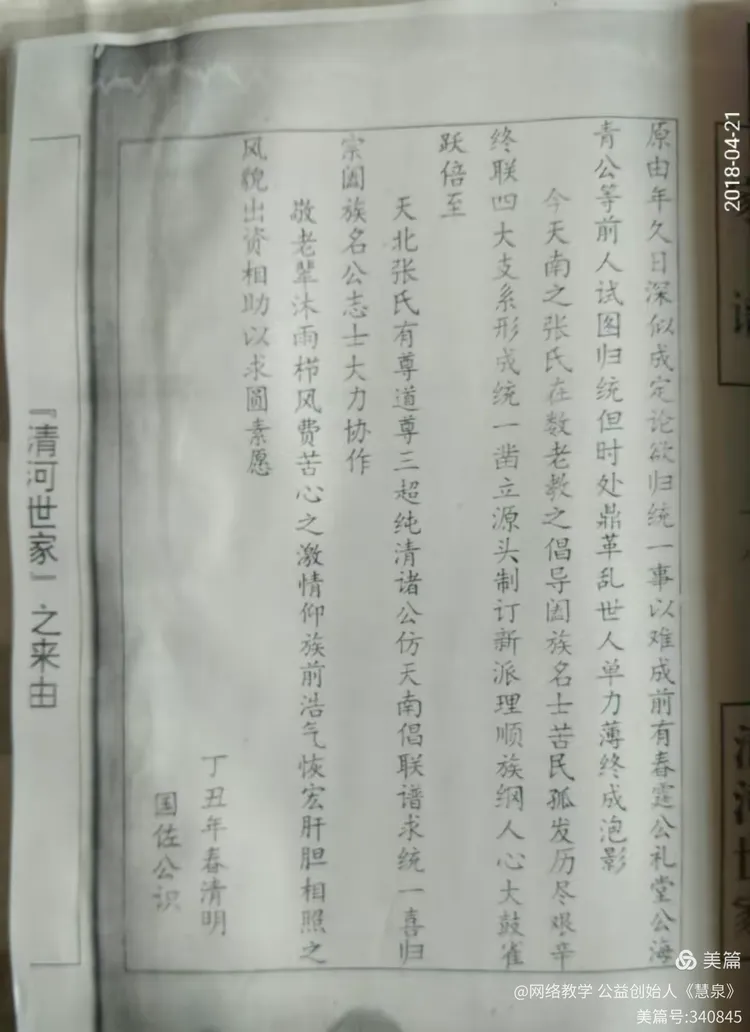 原由年久日深似成定论欲归统一事以难成前有春霆公礼堂公海
青公等前人试图归统但时处鼎革乱世人单力薄终成泡影
今天南之张氏在数老教之倡导阖族名士苦民孤发历尽艰辛
终联四大支系形成统一凿立源头制订新派理顺族纲人心大鼓雀
跃倍至
天北张氏有尊道尊三超纯清诸公仿天南倡联谱求统一喜归
宗阖族名公志士大力协作
敬老辈沐雨栉风费苦心之激情仰族前浩气恢宏肝胆相照之
风貌出资相助以求圆素愿
丁丑年春清明
国佐公识
『清河世家』之来由
2018-04-21
美篇
@网络教学 公益创始人《慧泉》
美篇号:340845